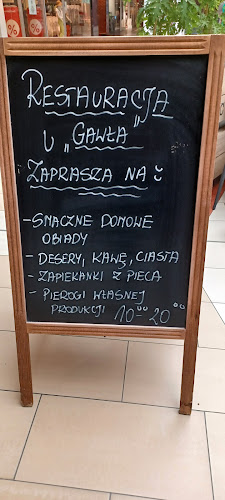 %
%
RESTAURACJA
U „GAWŁA”
ZAPRASZA NA:
- SMACZNE DOMOWE
OBIADY
- DESERY, KAWĘ, CIASTA
- ZAPIEKANKI Z PIECA
- PIEROGI WŁASNEJ
PRODUKCJI 10⁰⁰-20⁰⁰